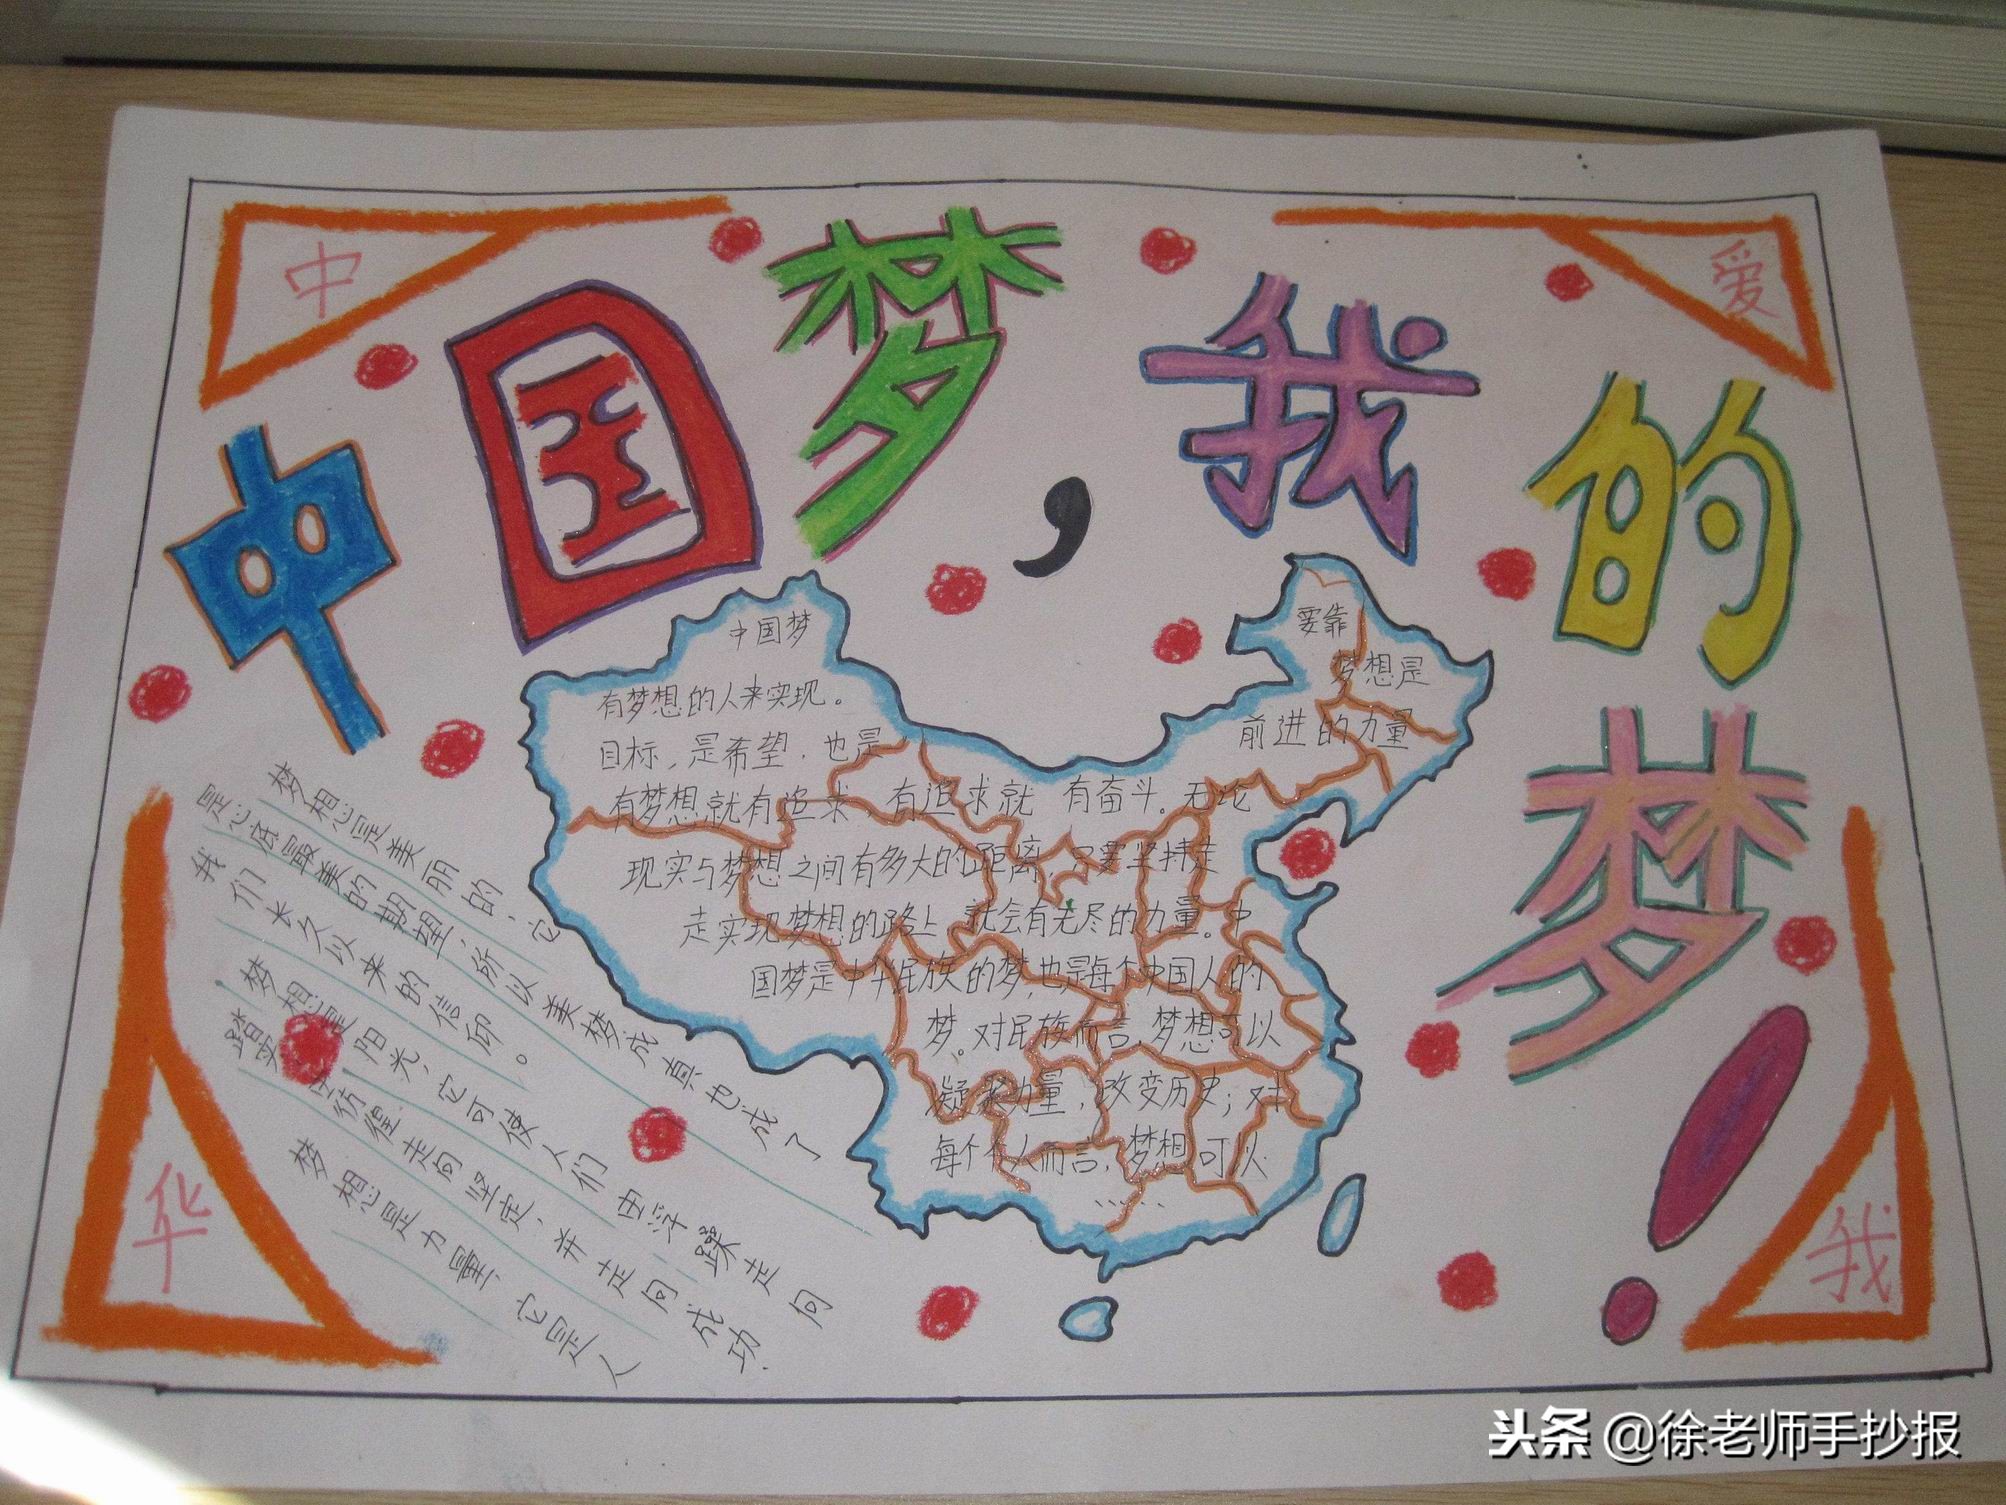 中
爱
中国梦，我的梦！
中国梦 要靠
有梦想的人来实现。 梦想是
目标，是希望，也是 前进的力量
有梦想就有追求，有追求就 有奋斗。无论
现实与梦想之间有多大的距离，只要坚持走
走实现梦想的路上 就会有无尽的力量。中
国梦是中华民族的梦，也是每个中国人的
梦。对民族而言，梦想可以
凝聚力量，改变历史；对
每个个人而言，梦想可以
……
梦想是美丽的，它
是心底最美的期望，所以美梦成真也成了
我们长久以来的信仰。
梦想是阳光，它可使人们由浮躁走向
踏实，由彷徨走向坚定，并走向成功.
梦想是力量，它是人
华
我
头条 @徐老师手抄报